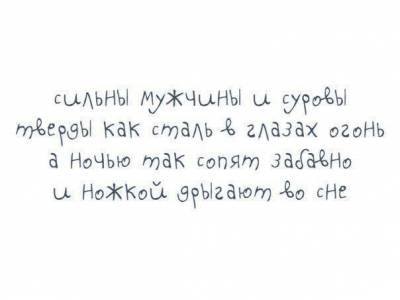 сильны мужчины и суровы
тверды как сталь в глазах огонь
а ночью так сопят забавно
и ножкой дрыгают во сне